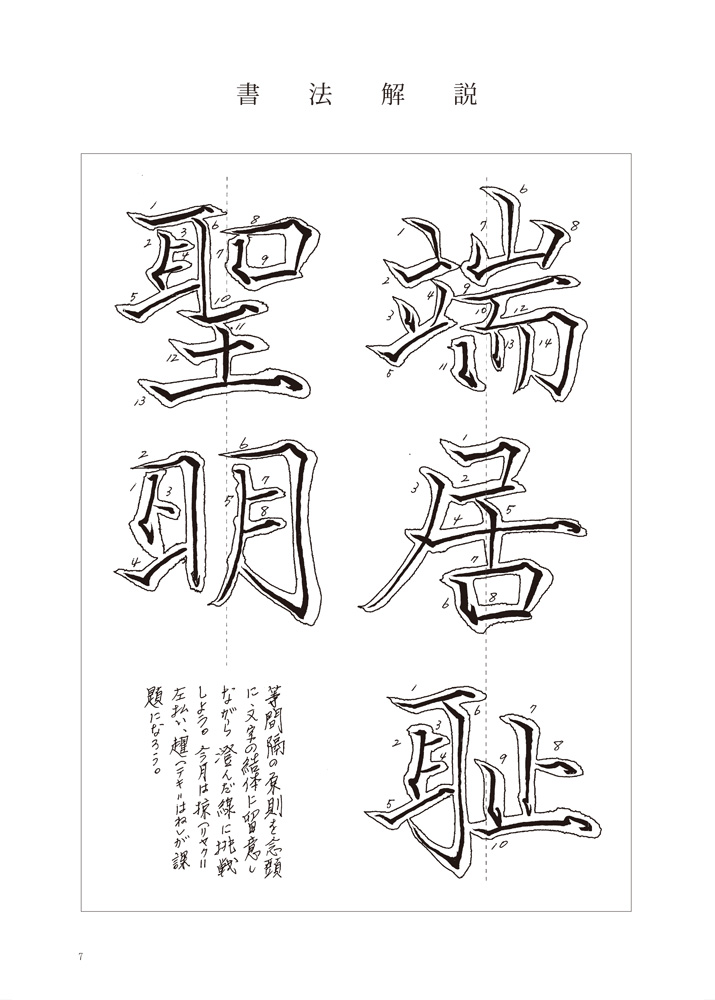 書法解説
端居耻
聖明
等間隔の原則を念頭
に、文字の結体に留意し
ながら澄んだ線に挑戦
しよう。今月は掠(リャク=
左払い)、趯(テキ=はね)が課
題になろう。
7